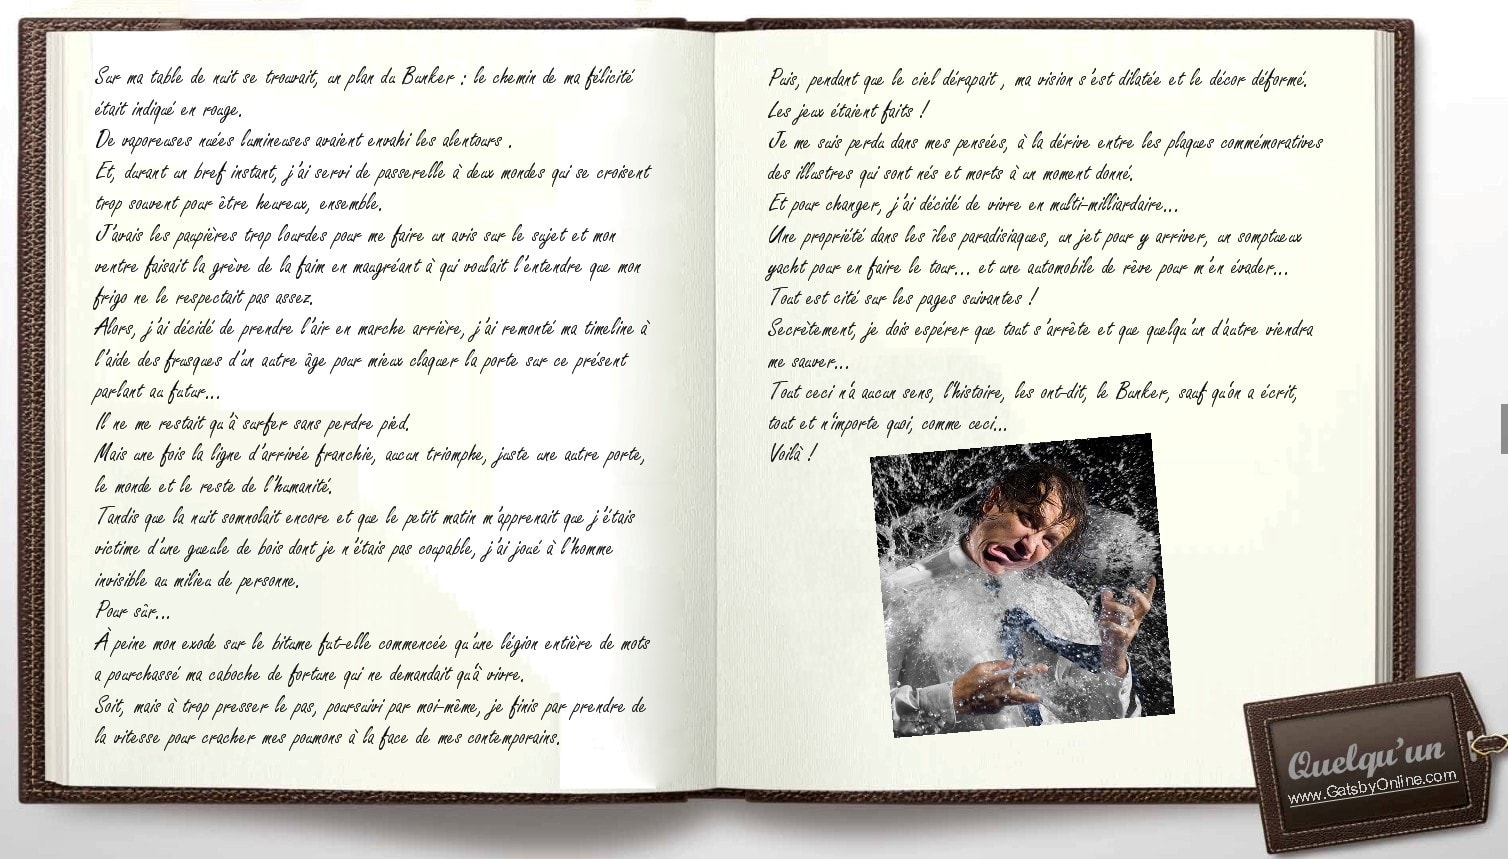 Sur ma table de nuit se trouvait, un plan du Bunker : le chemin de ma félicité
était indiqué en rouge.
De vaporeuses nuées lumineuses avaient envahi les alentours .
Et, durant un bref instant, j'ai servi de passerelle à deux mondes qui se croisent
trop souvent pour être heureux, ensemble.
J'avais les paupières trop lourdes pour me faire un avis sur le sujet et mon
ventre faisait la grève de la faim en maugréant à qui voulait l'entendre que mon
frigo ne le respectait pas assez.
Alors, j'ai décidé de prendre l'air en marche arrière, j'ai remonté ma timeline à
l'aide des frusques d'un autre âge pour mieux claquer la porte sur ce présent
parlant au futur...
Il ne me restait qu'à surfer sans perdre pied.
Mais une fois la ligne d'arrivée franchie, aucun triomphe, juste une autre porte,
le monde et le reste de l'humanité.
Tandis que la nuit somnolait encore et que le petit matin m'apprenait que j'étais
victime d'une gueule de bois dont je n'étais pas coupable, j'ai joué à l'homme
invisible au milieu de personne.
Pour sûr...
À peine mon exode sur le bitume fut-elle commencée qu'une légion entière de mots
a pourchassé ma caboche de fortune qui ne demandait qu'à vivre.
Soit, mais à trop presser le pas, poursuivi par moi-même, je finis par prendre de
la vitesse pour cracher mes poumons à la face de mes contemporains.
Puis, pendant que le ciel dérapait , ma vision s'est dilatée et le décor déformé.
Les jeux étaient faits !
Je me suis perdu dans mes pensées, à la dérive entre les plaques commémoratives
des illustres qui sont nés et morts à un moment donné.
Et pour changer, j'ai décidé de vivre en multi-milliardaire...
Une propriété dans les îles paradisiaques, un jet pour y arriver, un somptueux
yacht pour en faire le tour... et une automobile de rêve pour m'en évader...
Tout est cité sur les pages suivantes !
Secrètement, je dois espérer que tout s'arrête et que quelqu'un d'autre viendra
me sauver...
Tout ceci n'a aucun sens, l'histoire, les ont-dit, le Bunker, sauf qu'on a écrit,
tout et n'importe quoi, comme ceci...
Voilà !
Quelqu'un
www.GatsbyOnline.com